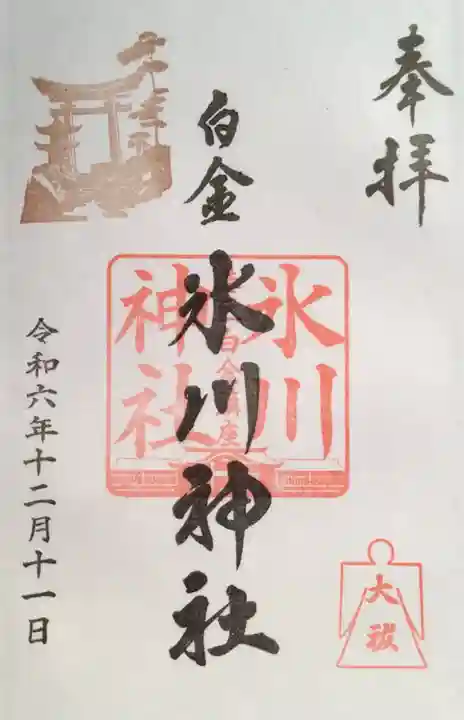 奉拝
白金
氷川神社
氷川
神社
白金鎮座
大祓
令和六年十二月十一日